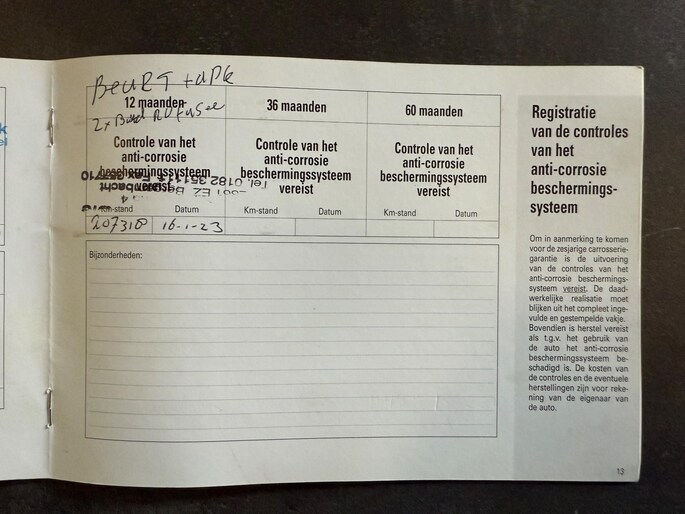 BeuRT + APK
12 maanden
36 maanden
60 maanden
2x Band
Controle van het
anti-corrosie
beschermingssysteem
vereist
Controle van het
anti-corrosie
beschermingssysteem
vereist
Controle van het
anti-corrosie
beschermingssysteem
vereist
Tel. 0182 351
Km-stand Datum
Km-stand Datum
Km-stand Datum
207310 16-1-23
Bijzonderheden:
Registratie
van de controles
van het
anti-corrosie
beschermings-
systeem
Om in aanmerking te komen
voor de zesjarige carrosserie-
garantie is de uitvoering
van de controles van het
anti-corrosie beschermings-
systeem vereist. De daad-
werkelijke realisatie moet
blijken uit het compleet inge-
vulde en gestempelde vakje.
Bovendien is herstel vereist
als t.g.v. het gebruik van
de auto het anti-corrosie
beschermingssysteem be-
schadigd is. De kosten van
de controles en de eventuele
herstellingen zijn voor reke-
ning van de eigenaar van
de auto.
13